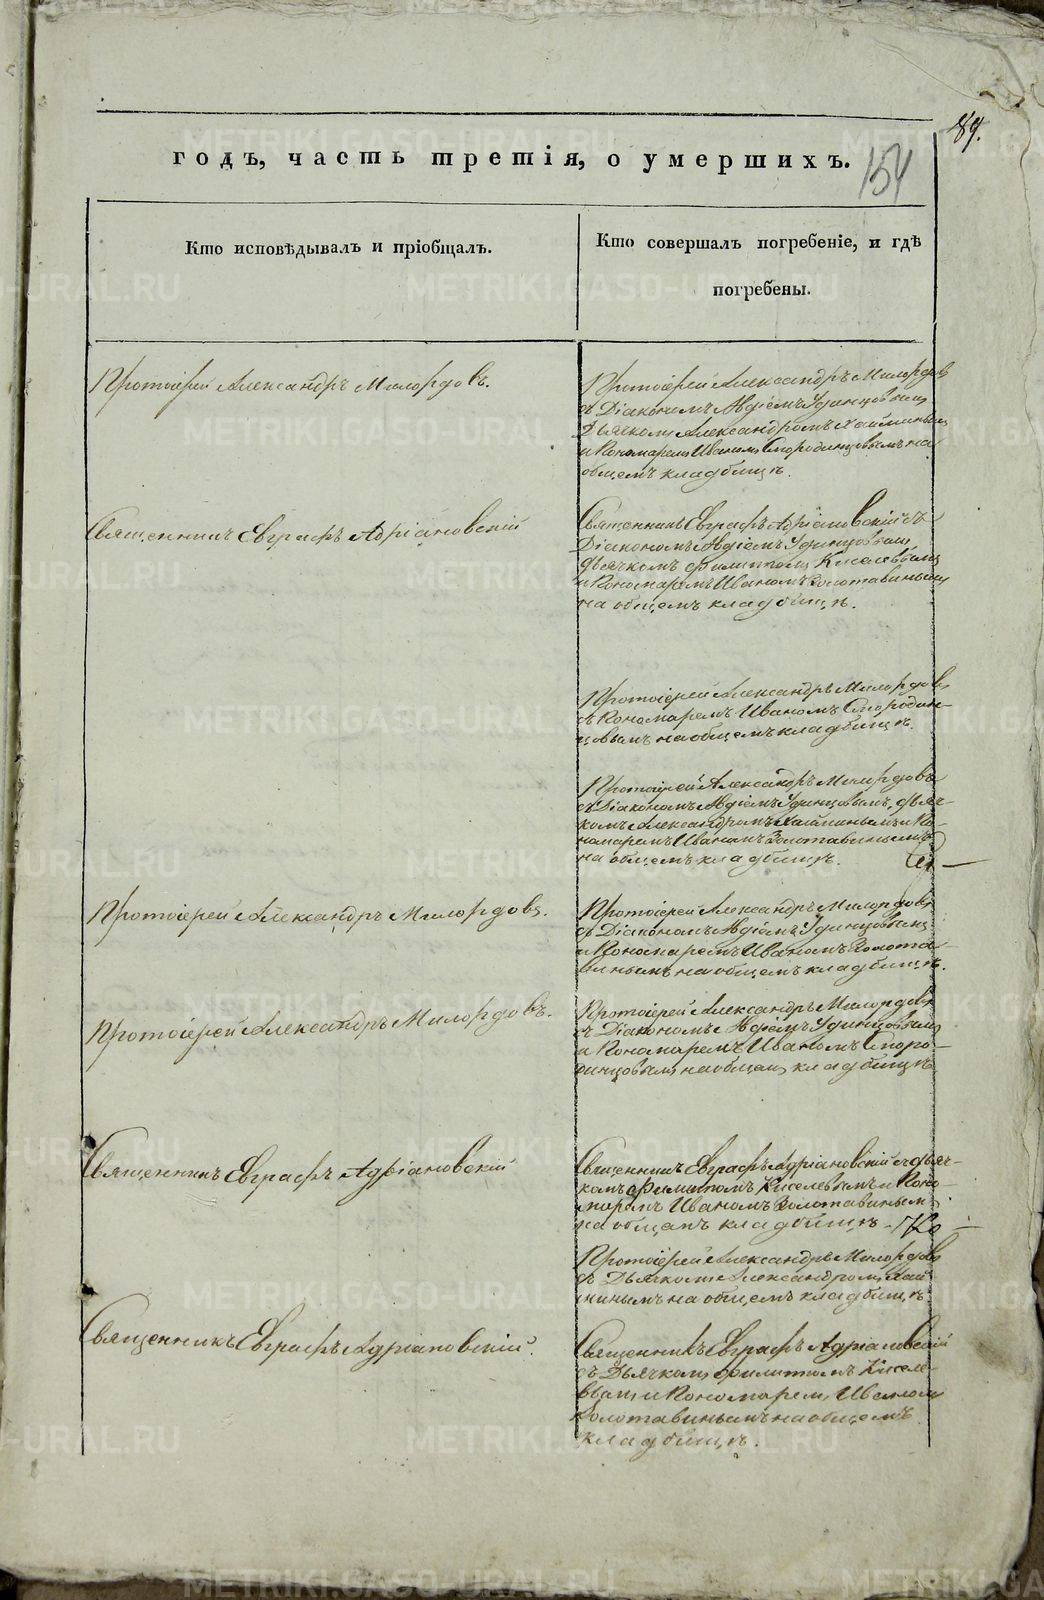 89.
годъ, часть третія, о умершихъ.
154
Кто исповѣдывалъ и пріобщалъ.
Кто совершалъ погребеніе, и гдѣ
погребены.
Протоіерей Александръ Милордовъ.
Протоіерей Александръ Милордовъ
съ Діакономъ Авдіемъ Удинцовымъ
Дьячкомъ Александромъ Хайминымъ
и Пономаремъ Иваномъ Смородинцовымъ на
общемъ кладбищѣ.
Священникъ Евграфъ Адріановскій
Священникъ Евграфъ Адріановскій съ
Діакономъ Авдіемъ Удинцовымъ
дьячкомъ Филиппомъ Киселевымъ
и Пономаремъ Иваномъ Золотавинымъ
на общемъ кладбищѣ.
Протоіерей Александръ Милордовъ
съ Пономаремъ Иваномъ Смородин-
цовымъ на общемъ кладбищѣ.
Протоіерей Александръ Милордовъ
съ Діакономъ Авдіемъ Удинцовымъ, дьяч-
комъ Александромъ Хайминымъ и По-
номаремъ Иваномъ Золотавинымъ
на общемъ кладбищѣ.
Протоіерей Александръ Милордовъ.
Протоіерей Александръ Милордовъ
съ Діакономъ Авдіемъ Удинцовымъ
и Пономаремъ Иваномъ Золота-
винымъ на общемъ кладбищѣ.
Протоіерей Александръ Милордовъ.
Протоіерей Александръ Милордовъ
съ Діакономъ Авдіемъ Удинцовымъ
и Пономаремъ Иваномъ Сморо-
динцовымъ на общемъ кладбищѣ
Священникъ Евграфъ Адріановскій
Священникъ Евграфъ Адріановскій съ дьяч-
комъ Филиппомъ Киселевымъ и Поно-
маремъ Иваномъ Золотавинымъ
на общемъ кладбищѣ
Протоіерей Александръ Милордовъ
съ Дьячкомъ Александромъ Хай-
минымъ на общемъ кладбищѣ.
Священникъ Евграфъ Адріановскій.
Священникъ Евграфъ Адріановскій
съ Дьячкомъ Филиппомъ Киселе-
вымъ и Пономаремъ Иваномъ
Золотавинымъ на общемъ
кладбищѣ.